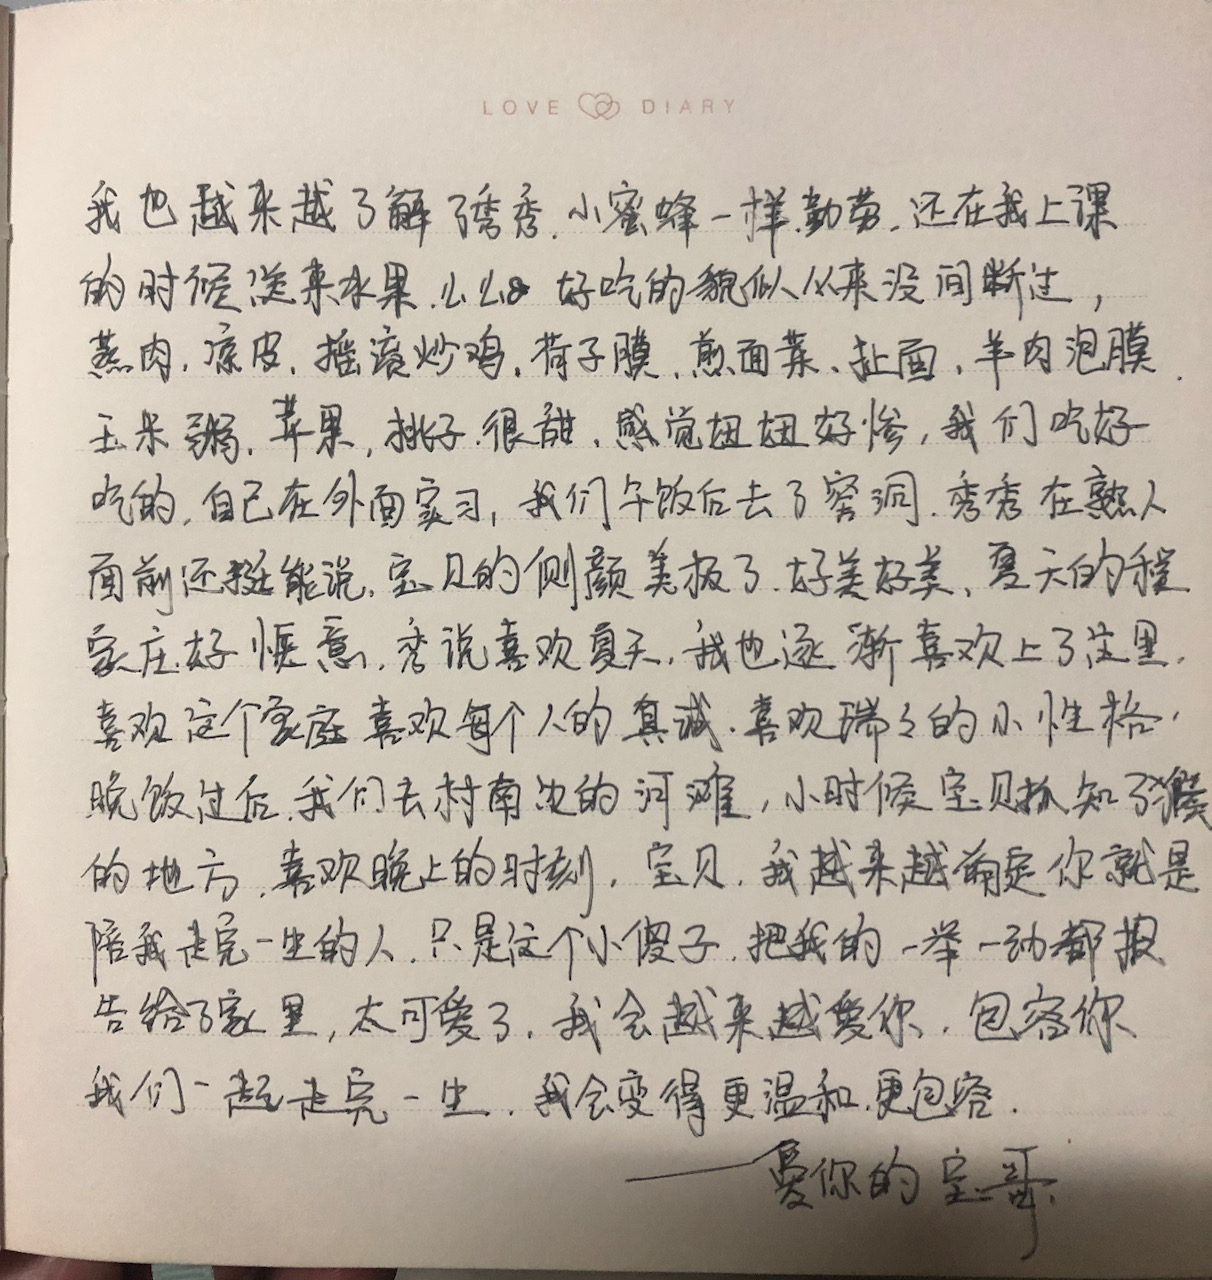 LOVE DIARY
我也越来越了解了秀秀.小蜜蜂一样勤劳.还在我上课
的时候送来水果.么么。好吃的貌似从来没间断过,
蒸肉.凉皮.摇滚炒鸡.荷子膜.煎面菜、扯面.羊肉泡膜.
玉米粥.苹果,桃子.很甜.感觉妞妞好惨,我们吃好
吃的.自己在外面实习,我们午饭后去了窑洞.秀秀在熟人
面前还挺能说.宝贝的侧颜美极了.好美好美、夏天的程
家庄好惬意.秀说喜欢夏天.我也逐渐喜欢上了这里.
喜欢这个家庭喜欢每个人的真诚.喜欢瑞瑞的小性格.
晚饭过后.我们去村南边的河滩,小时候宝贝抓知了猴
的地方.喜欢晚上的时刻.宝贝.我越来越确定你就是
陪我走完一生的人.只是这个小傻子.把我的一举一动都报
告给了家里,太可爱了.我会越来越爱你.包容你
我们一起走完一生.我会变得更温和.更包容.
——爱你的宝哥.